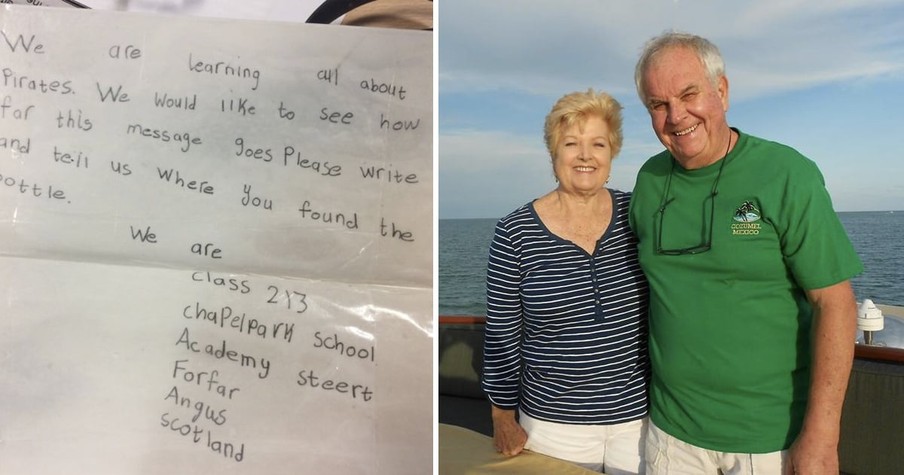 We are learning all about
Pirates. We would like to see how
far this message goes Please write
and tell us where you found the
bottle.
We are
class 2Y3
chapelpark school
Academy steert
Forfar
Angus
scotland
COZUMEL
MEXICO